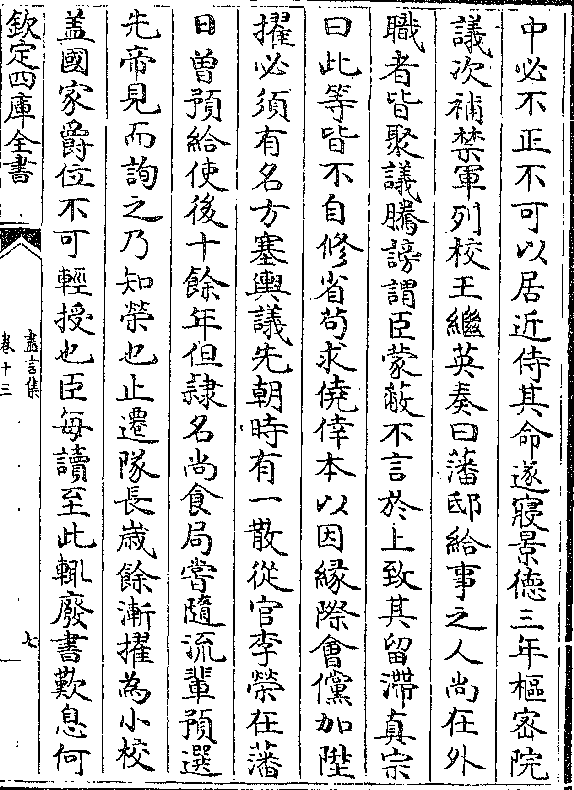 中必不正不可以居近侍其命遂寢景徳三年樞宻院
議次補禁軍列校王繼英奏曰藩邸給事之人尚在外
職者皆聚議騰謗謂臣蒙蔽不言於上致其留滯真宗
曰此等皆不自修省苟求僥倖本以因縁際會儻加陞
擢必須有名方塞輿議先朝時有一散從官李榮在藩
日曽預給使後十餘年但隷名尚食局嘗隨流輩預選
先帝見而詢之乃知榮也止遷隊長歳餘漸擢為小校
盖國家爵位不可輕授也臣每讀至此輒廢書歎息何
欽定四庫全書
盡言集
卷十三
七